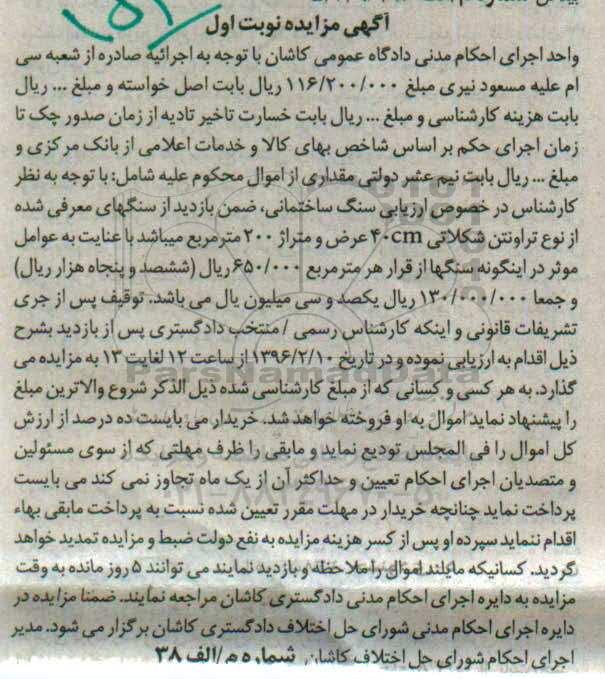 آگهی مزایده نوبت اول
واحد اجرای احکام مدنی دادگاه عمومی کاشان با توجه به اجرائیه صادره از شعبه سی
ام علیه مسعود نیری مبلغ ۱۱۶/۲۰۰/۰۰۰ ریال بابت اصل خواسته و مبلغ ... ریال
بابت هزینه کارشناسی و مبلغ ... ریال بابت خسارت تاخیر تادیه از زمان صدور چک تا
زمان اجرای حکم بر اساس شاخص بهای کالا و خدمات اعلامی از بانک مرکزی و
مبلغ ... ریال بابت نیم عشر دولتی مقداری از اموال محکوم علیه شامل: با توجه به نظر
کارشناس در خصوص ارزیابی سنگ ساختمانی، ضمن بازدید از سنگهای معرفی شده
از نوع تراونتن شکلاتی ۴۰cm عرض و متراژ ۲۰۰ مترمربع میباشد با عنایت به عوامل
موثر در اینگونه سنگها از قرار هر مترمربع ۶۵۰/۰۰۰ ریال (ششصد و پنجاه هزار ریال)
و جمعا ۱۳۰/۰۰۰/۰۰۰ ریال یکصد و سی میلیون یال می باشد. توقیف پس از جری
تشریفات قانونی و اینکه کارشناس رسمی / منتخب دادگستری پس از بازدید بشرح
ذیل اقدام به ارزیابی نموده و در تاریخ ۱۳۹۶/۲/۱۰ از ساعت ۱۲ لغایت ۱۳ به مزایده می
گذارد. به هر کسی و کسانی که از مبلغ کارشناسی شده ذیل الذکر شروع والاترین مبلغ
را پیشنهاد نماید اموال به او فروخته خواهد شد. خریدار می بایست ده درصد از ارزش
کل اموال را فی المجلس تودیع نماید و مابقی را ظرف مهلتی که از سوی مسئولین
و متصدیان اجرای احکام تعیین و حداکثر آن از یک ماه تجاوز نمی کند می بایست
پرداخت نماید چنانچه خریدار در مهلت مقرر تعیین شده نسبت به پرداخت مابقی بهاء
اقدام ننماید سپرده او پس از کسر هزینه مزایده به نفع دولت ضبط و مزایده تمدید خواهد
گردید. کسانیکه مایلند اموال را ملاحظه و بازدید نمایند می توانند ۵ روز مانده به وقت
مزایده به دایره اجرای احکام مدنی دادگستری کاشان مراجعه نمایند. ضمنا مزایده در
دایره اجرای احکام مدنی شورای حل اختلاف دادگستری کاشان برگزار می شود. مدیر
اجرای احکام شورای حل اختلاف کاشان شماره م/الف ۳۸
ParsNamadData